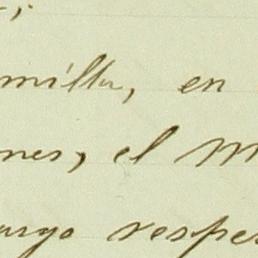 milla, en
nes, el M
urgo respe